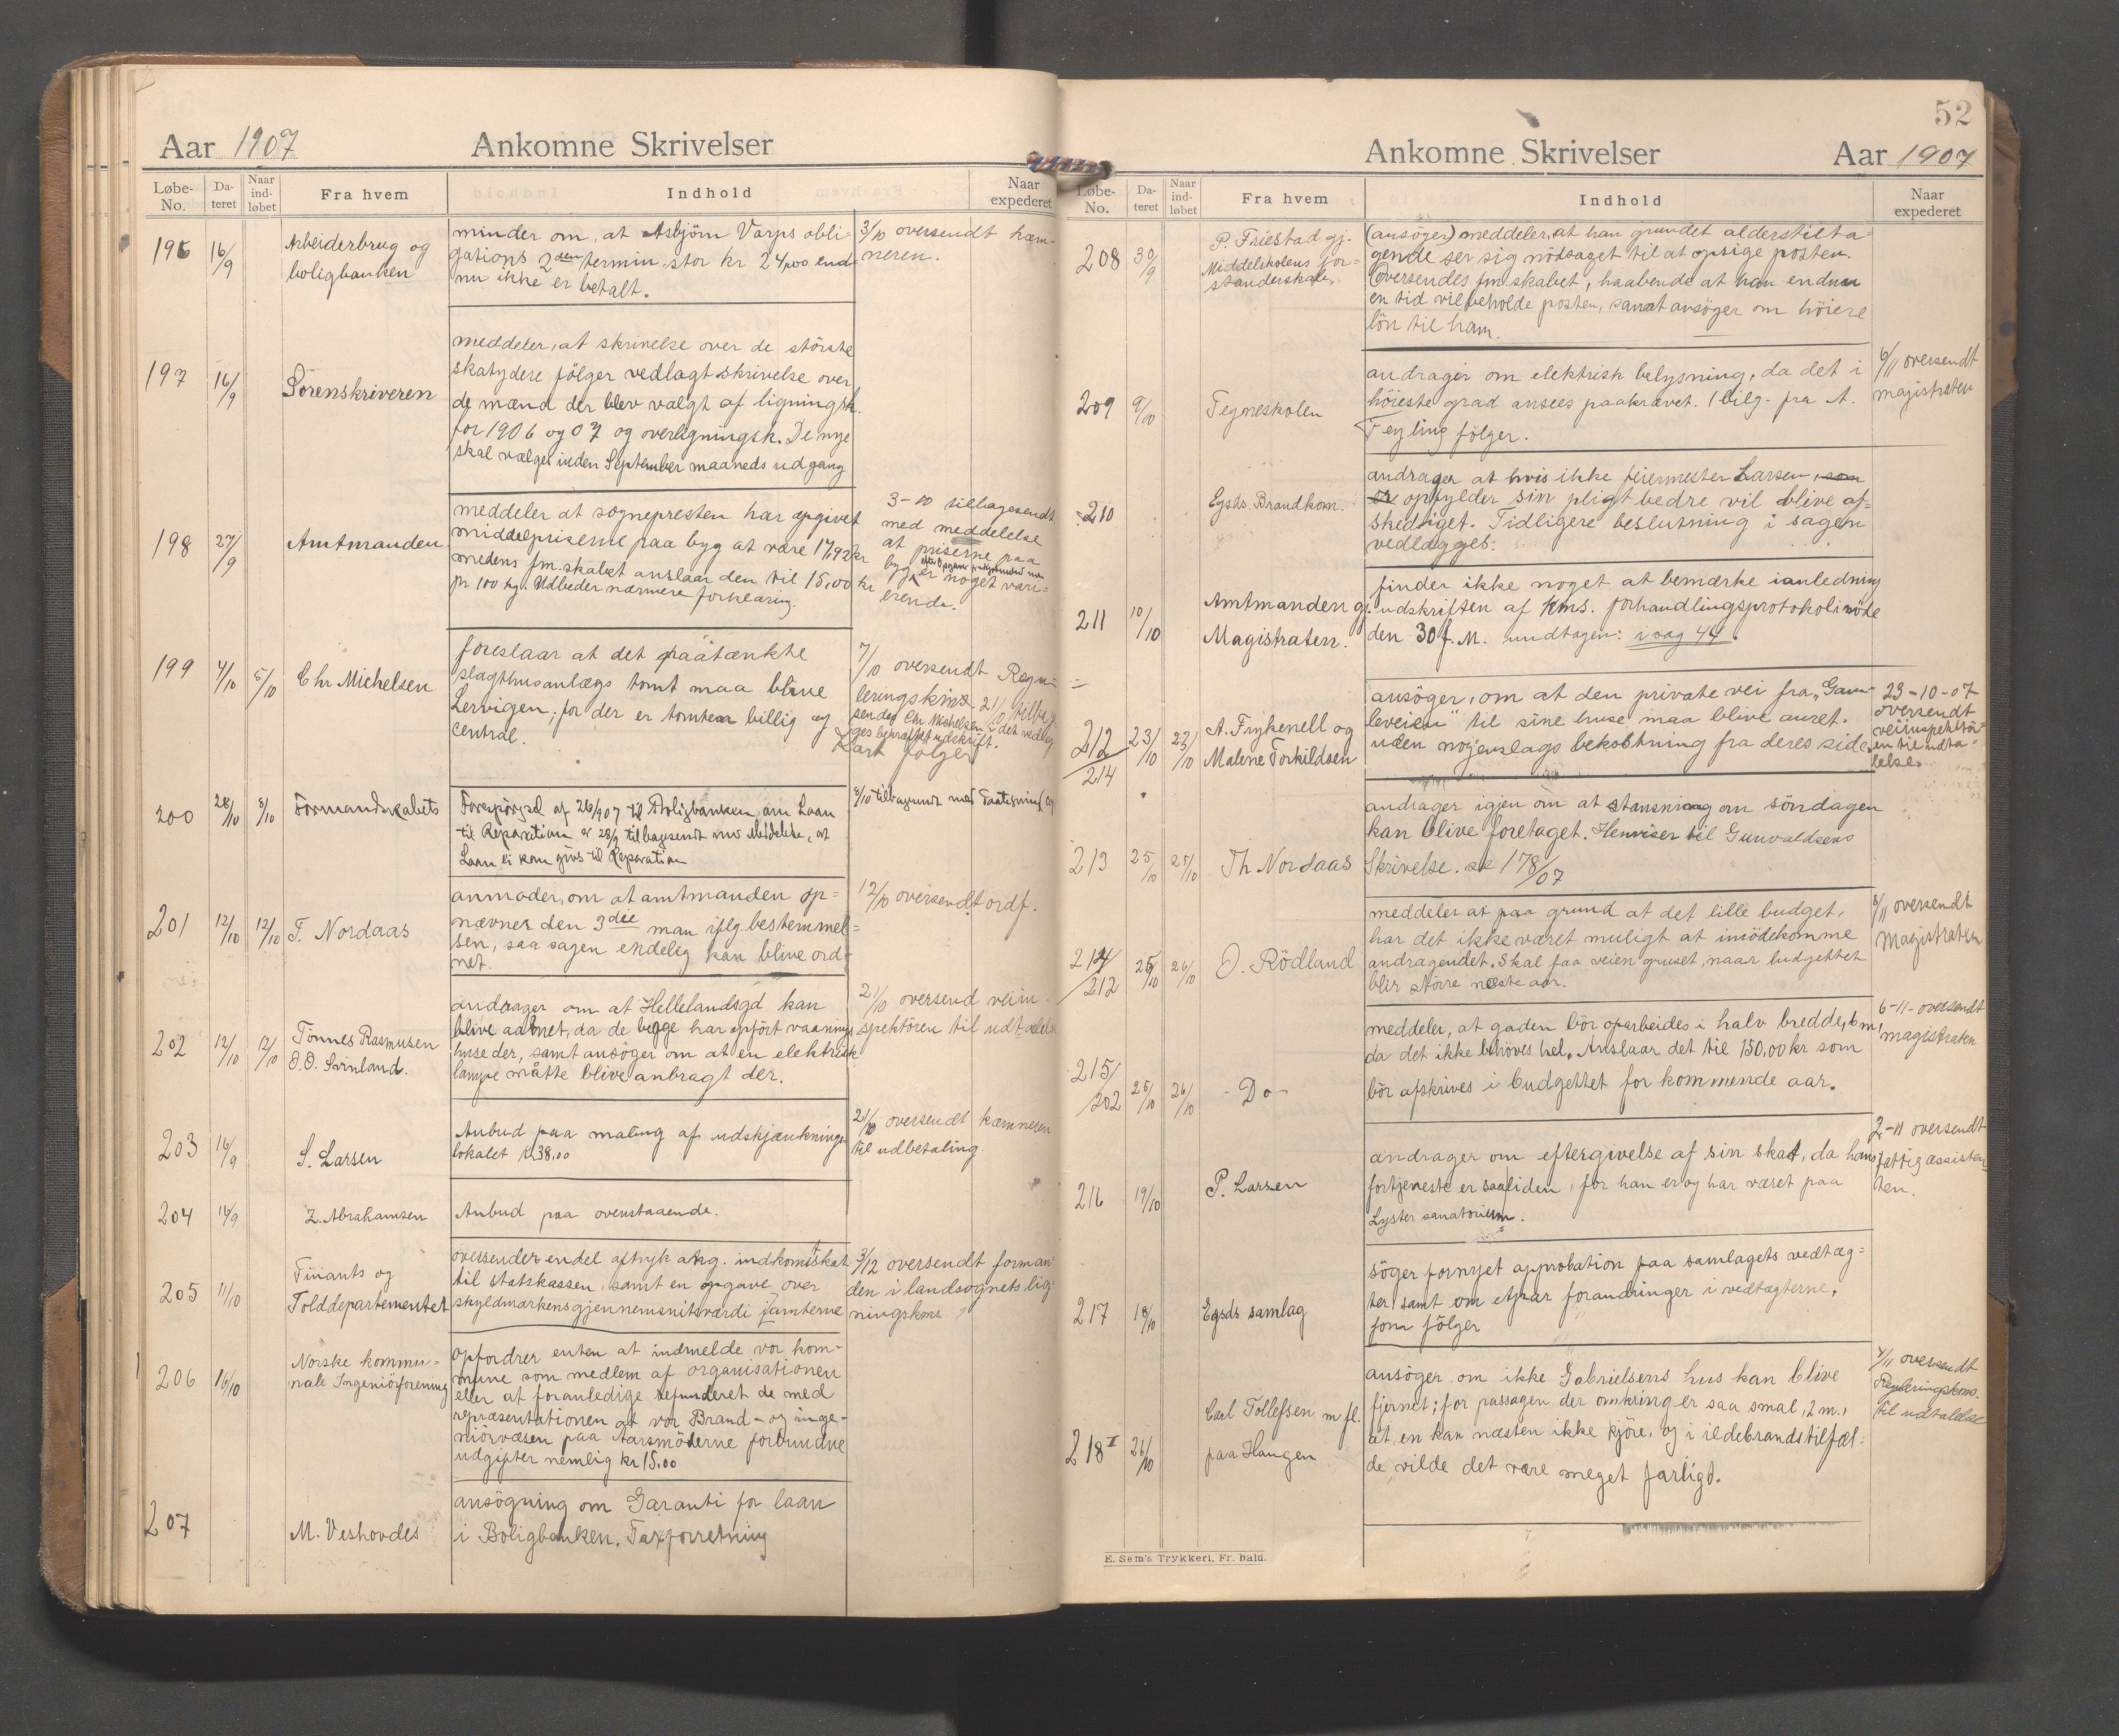 Aar 1907
Ankomne Skrivelser
Løbe-No.
Da-teret
Naar ind-løbet
Fra hvem
Indhold
Naar expederet
196
16/9
Arbeiderbrug og
boligbanken
minder om, at Asbjörn Varps obli=
gations 2den termin stor kr 24,00 end=
nu ikke er betalt.
3/10 oversendt kæm-
neren.
197
16/9
Sorenskriveren
meddeler, at skrivelse over de störste
skatydere fölger vedlagt skrivelse over
de mænd der blev valgt af ligningsk.
for 1906 og 07 og overligningsk. De nye
skal vælges inden September maaneds udgang
198
27/9
Amtmanden
meddeler at sognepresten har opgivet
middelpriserne paa byg at være 17,92 kr
medens fm.skabet anslaar den til 15,00 kr
pr 100 kg. Udbeder nærmere forklaring.
3-10 tilbagesendt
med meddelelse
at priserne paa
byg er noget vari=
erende.
199
4/10
5/10
Chr Michelsen
foreslaar at det paatænkte
slagthusanlægs tomt maa blive
Lervigen; for der er tomten billig og
central.
7/10 oversendt Regu=
leringskms. 21/10 tilbag
sendes Chr Michelsen, det vedlag
ges bekræftet udskrift.
Kart følger
200
28/10
8/10
Formandskabets
Forespörgsel af 26/907 til Boligbanken, om Laan
til Reparation er 28/9 tilbagesendt med Meddelelse, at
Laan ei kan givs til Reparation
8/10 tilbagesendt med Paategning
201
12/10
12/10
T. Nordaas
anmoder, om at amtmanden op=
nævner den 3die man iflg. bestemmel=
sen, saa sagen endelig kan blive ord=
net.
12/10 oversendt ordf.
202
12/10
12/10
Tönnes Rasmusen
O.O. Svinland.
andrager om at Hellelandsgd kan
blive aabnet, da de begge har opfört vaanings
huse der, samt ansöger om at en elektrisk
lampe måtte blive anbragt der.
21/10 oversend veiin-
spektören til udtalelse
203
16/9
S. Larsen
Anbud paa maling af udskjænknings
lokalet kr 38.00
21/10 oversendt kæmneren
til udbetaling.
204
16/9
Z. Abrahamsen
Anbud paa ovenstaaende.
205
11/10
Finants og
Tolddepartementet
oversender endel aftryk ang. indkomstskat
til statskassen, samt en opgave over
skyldmarkens gjennemsnitsværdi i amterne
3/12 oversendt forman
den i landsognets lig
ningskms.
206
16/10
Norske kommu=
nale Ingeniörforening
opfordrer enten at indmelde vor kom-
mune som medlem af organisationen
eller at foranledige refunderet de med
repræsentationen af vor Brand- og inge-
niörvæsen paa Aarsmöderne forbundne
udgifter nemlig kr 15.00
207
M. Veshovdes
ansögning om Garanti for laan
i Boligbanken. Taxforretning
52
Ankomne Skrivelser
Aar 1907
Løbe-No.
Da-teret
Naar ind-løbet
Fra hvem
Indhold
Naar expederet
208
30/9
P. Friestad gj.
Middelskolens for=
standerskab.
(ansöger) meddeler, at han grundet alderstilta=
gende ser sig nödsaget til at opsige posten.
Oversendes fm.skabet, haabende at han endnu
en tid vil beholde posten, samt ansöger om höiere
lön til ham.
209
9/10
Tegneskolen
andrager om elektrisk belysning, da det i
höieste grad ansees paakrævet. 1 bilg. fra A.
Feyling fölger.
6/11 oversendt
magistraten
210
Egsds. Brandkom.
andrager at hvis ikke feiermester Larsen, som
er opfylder sin pligt bedre vil blive af-
skediget. Tidligere beslutning i sagen
vedlægges.
211
10/10
Amtmanden gj.
Magistraten.
finder ikke noget at bemærke i anledning
udskriften af kms. forhandlingsprotokol i möde
den 30 f. M. undtagen: i vag 44.
212/214
23/10
23/10
A. Frykenell og
Malene Torkildsen
ansöger, om at den private vei fra „Gam-
leveien" til sine huse maa blive auret.
uden nogenslags bekostning fra deres side.
23-10-07
oversendt
veiinspektör=
en til udta=
lelse
213
25/10
25/10
Th Nordaas
andrager igjen om at stansning om söndagen
kan blive foretaget. Henviser til Gunvaldsens
Skrivelse. se 178/07
214/212
25/10
26/10
O. Rödland
meddeler at paa grund at det lille budget,
har det ikke været muligt at imödekomme
andragendet. Skal faa veien gruset, naar budgettet
blir större næste aar.
8/11 oversendt
Magistraten
215/202
25/10
26/10
- Do -
meddeler, at gaden bör oparbeides i halv bredde, 6 m,
da det ikke behöves hel. Anslaar det til 150,00 kr som
bör afskrives i budgettet for kommende aar.
6-11- oversendt
magistraten
216
19/10
P. Larsen
andrager om eftergivelse af sin skat, da hans
fortjeneste er saa liden, for han er og har været paa
Lyster sanatorium.
2-11 oversendt
fattigassisten=
ten.
217
18/10
Egsds samlag
söger fornyet approbation paa samlagets vedtæg=
ter, samt om etpar forandringer i vedtægterne,
som fölger
218 I
26/10
Carl Tollefsen m fl.
paa Haugen
ansöger om ikke Gabrielsens hus kan blive
fjernet; for passagen der omkring er saa smal, 2 m.,
at en kan næsten ikke kjöre, og i ildebrandstilfæl=
de vilde det være meget farligt.
4/11 oversendt
Reguleringskms.
til udtalelse
E. Sem's Trykkeri, Fr. hald.